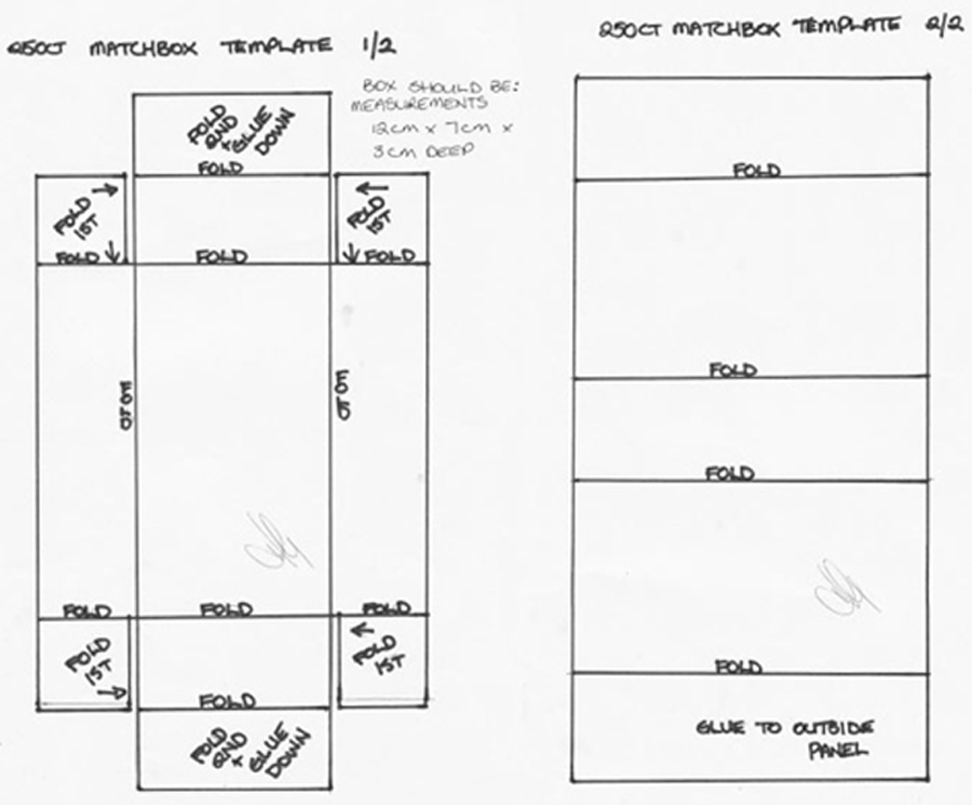 250CT MATCHBOX TEMPLATE 1/2
BOX SHOULD BE:
MEASUREMENTS
12cm x 7cm x
3cm DEEP
FOLD
2ND
+ GLUE
DOWN
FOLD
FOLD
1ST
FOLD
1ST
FOLD
FOLD
FOLD
FOLD
FOLD
FOLD
FOLD
FOLD
FOLD
1ST
FOLD
1ST
FOLD
FOLD
2ND
+ GLUE
DOWN
250CT MATCHBOX TEMPLATE 2/2
FOLD
FOLD
FOLD
FOLD
GLUE TO OUTSIDE
PANEL